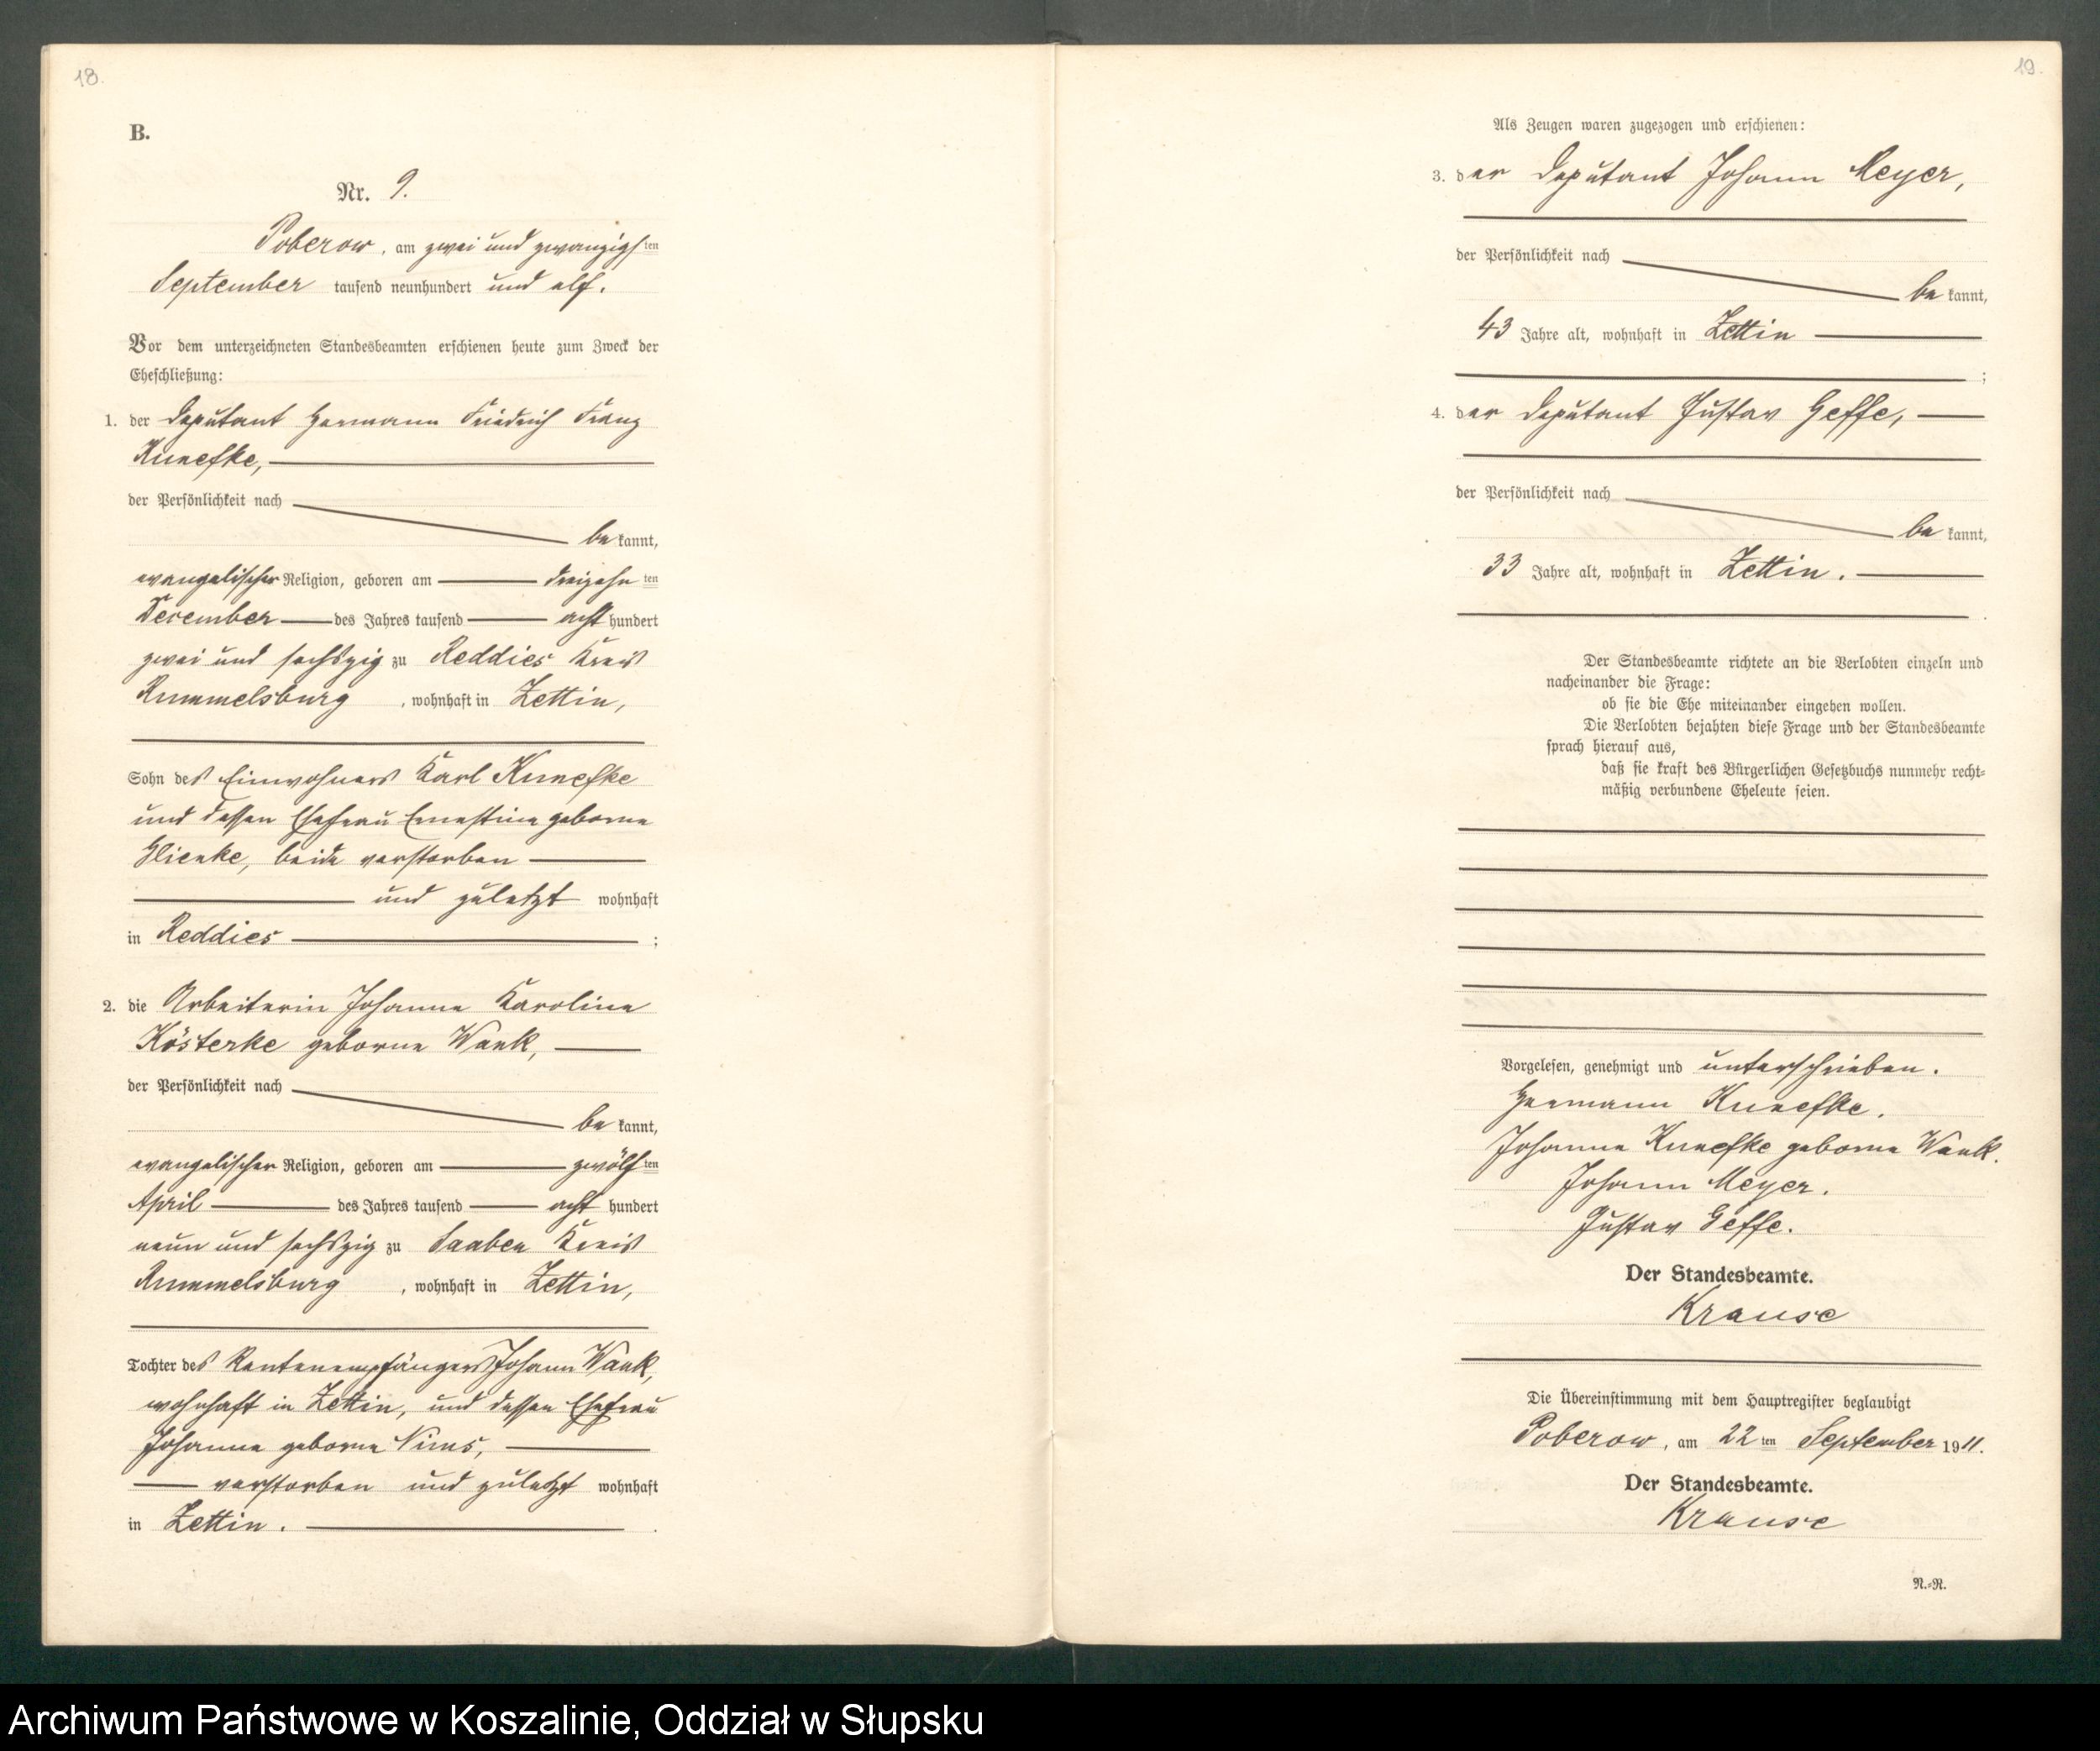 18.
B.
Nr. 9.
Poberow, am zwei und zwanzigsten
September tausend neunhundert und elf.
Vor dem unterzeichneten Standesbeamten erschienen heute zum Zweck der
Eheschließung:
1. der Deputant Hermann Friedrich Franz
Kunefke,
der Persönlichkeit nach
bekannt,
evangelischer Religion, geboren am dreizehnten
December des Jahres tausend achthundert
zwei und sechszig zu Reddies Kreis
Rummelsburg, wohnhaft in Zettin,
Sohn des Einwohners Karl Kunefke
und dessen Ehefrau Ernestine geborne
Glienke, beide verstorben
und zuletzt wohnhaft
in Reddies;
2. die Arbeiterin Johanne Karoline
Kösterke geborne Wank,
der Persönlichkeit nach
bekannt,
evangelischer Religion, geboren am zwölften
April des Jahres tausend acht hundert
neun und sechszig zu Saaben Kreis
Rummelsburg, wohnhaft in Zettin,
Tochter des Rentenempfängers Johann Wank,
wohnhaft in Zettin, und dessen Ehefrau
Johanne geborne
verstorben und zuletzt wohnhaft
in Zettin.
19.
Als Zeugen waren zugezogen und erschienen:
3. der Deputant Johann Meyer,
der Persönlichkeit nach
bekannt,
43 Jahre alt, wohnhaft in Zettin
;
4. der Deputant Gustav Geffe,
der Persönlichkeit nach
bekannt,
33 Jahre alt, wohnhaft in Zettin.
Der Standesbeamte richtete an die Verlobten einzeln und
nacheinander die Frage:
ob sie die Ehe miteinander eingehen wollen.
Die Verlobten bejahten diese Frage und der Standesbeamte
sprach hierauf aus,
daß sie kraft des Bürgerlichen Gesetzbuchs nunmehr recht-
mäßig verbundene Eheleute seien.
Vorgelesen, genehmigt und unterschrieben.
Hermann Kunefke.
Johanne Kunefke geborne Wank.
Johann Meyer.
Gustav Geffe.
Der Standesbeamte.
Krause
Die Übereinstimmung mit dem Hauptregister beglaubigt
Poberow, am 22ten September 1911.
Der Standesbeamte.
Krause
N.-R.
Archiwum Państwowe w Koszalinie, Oddział w Słupsku